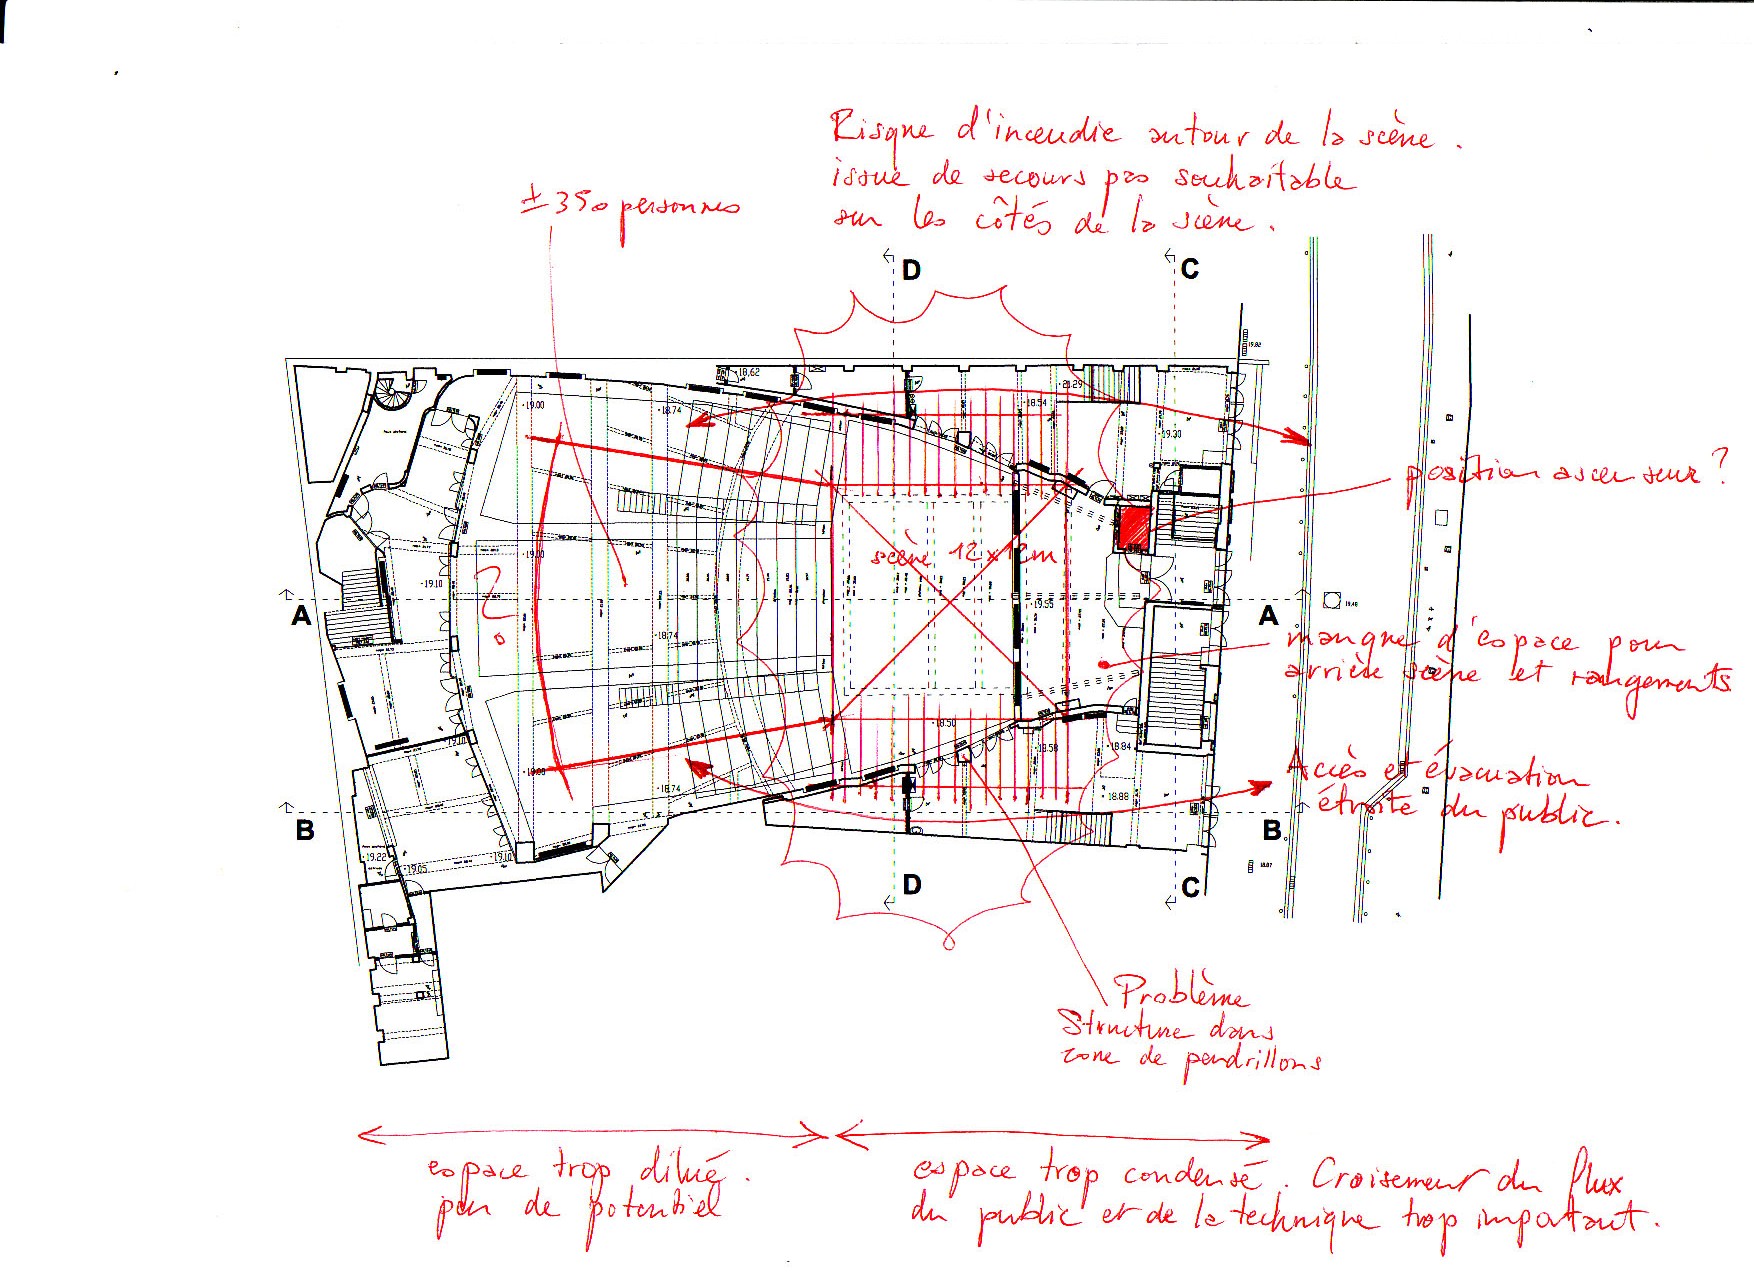 Risque d'incendie autour de la scène.
issue de secours pas souhaitable
sur les côtés de la scène.
± 350 personnes
D
C
19.82
18.62
21.29
19.00
18.74
18.54
19.30
position ascenseur ?
scène 12x12m
19.00
19.10
?
A
19.55
A
19.48
manque d'espace pour
arrière scène et rangements
18.74
18.50
19.10
18.58
18.84
19.00
18.74
18.88
Accès et évacuation
étroite du public.
B
B
19.22
19.05
19.10
18.87
D
C
Problème
Structure dans
zone de pendrillons
espace trop dilué.
peu de potentiel
espace trop condensé. Croisement du flux
du public et de la technique trop important.